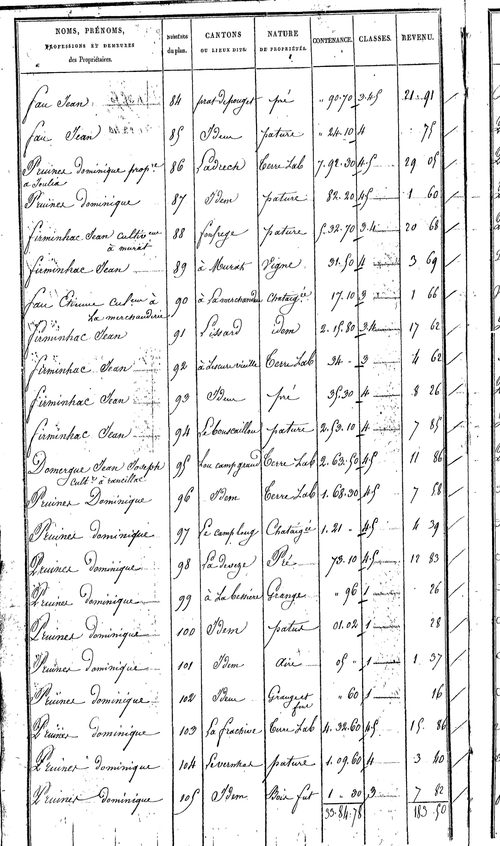 NOMS, PRÉNOMS, PROFESSIONS ET DEMEURES des Propriétaires. NUMÉROS du plan. CANTONS OU LIEUX DITS. NATURE DE PROPRIÉTÉS. CONTENANCE. CLASSES. REVENU.
fau Jean 84 prat de pouget pré " 90.70 3.45 21 91
fau Jean 85 Idem pature " 24.10 4 75
Pruines dominique prop.re 86 Ladrech Terre Lab 7.92.30 4.5 29 05
a Toulia
Pruines dominique 87 Idem pature 82.20 45 1 60
firminhac Jean Cultiv.eur 88 fonfrege pature 5.32.70 3.4 20 68
à murat
firminhac Jean 89 à Murat Vigne 31.50 4 3 69
fau Etienne Cul.eur à 90 à La merchanderie Chataig.re 17.10 3 1 66
La merchanderie
firminhac Jean 91 Lissard idem 2.15.80 34 17 62
firminhac Jean 92 à Lescure vieille Terre Lab 34 - 3 4 62
firminhac Jean 93 Idem pré 35.30 4 8 26
firminhac Jean 94 Le bouscaillou pature 2.53.10 4 7 85
Domergue Jean Joseph 95 Lou camp grand Terre Lab 2.63.50 45 11 86
Cult.r à rancillac
Pruines Dominique 96 Idem Terre Lab 1.68.30 45 7 58
Pruines dominique 97 Le camp loug Chataig.re 1.21 - 45 4 39
Pruines dominique 98 La deveze Pré 73.10 45 12 83
Pruines dominique 99 à La bessiere Grange " 96 1 26
Pruines dominique 100 Idem patus 01.02 1 28
Pruines dominique 101 Idem aire 05 - 1 1 37
Pruines dominique 102 Idem Grange et four " 60 1 16
Pruines dominique 103 La frachive Terre Lab 4.32.60 45 15 86
Pruines dominique 104 Levernhet pature 1.09.60 4 3 40
Pruines dominique 105 Idem Bois fut 1 - 30 3 7 82
33.84.78 183.50